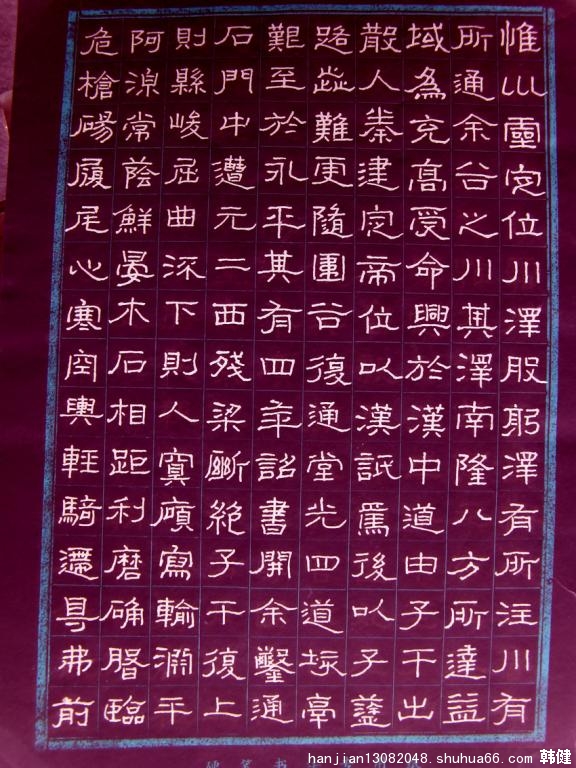 惟巛靈定位川澤股躬澤有所注川有
所通余谷之川其澤南隆八方所達益
域為充高受命興於漢中道由子午出
散入秦建定帝位以漢詆焉後以子
路歰難更隨圍谷復通堂光四道垓亭
艱至於永平其有四年詔書開余鑿通
石門中遭元二西殘梁斷絕子午復上
則縣峻屈曲流下則人冥廎寫輸淵平
阿湶常蔭鮮晏木石相距利磨确臨
危槍碭履尾心寒空輿輕騎遰㝵弗前
hanjian13082048.shuhua66.com 韩健